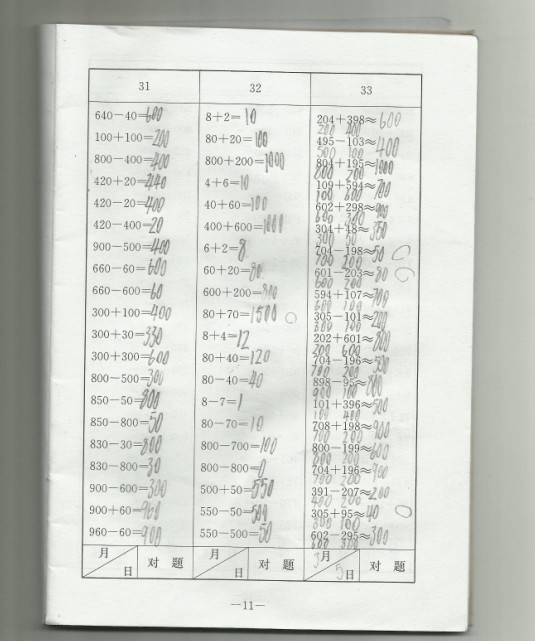 31
640-40=600
100+100=200
800-400=400
420+20=440
420-20=400
420-400=20
900-500=400
660-60=600
660-600=60
300+100=400
300+30=330
300+300=600
800-500=300
850-50=800
850-800=50
830-30=800
830-800=30
900-600=300
900+60=960
960-60=900
月
日
对 题
32
8+2=10
80+20=100
800+200=1000
4+6=10
40+60=100
400+600=1000
6+2=8
60+20=80
600+200=800
80+70=1500
8+4=12
80+40=120
80-40=40
8-7=1
80-70=10
800-700=100
800-800=0
500+50=550
550-50=500
550-500=50
月
日
对 题
33
204+398≈600
200 400
495-103≈400
500 100
804+195≈1000
800 200
109+594≈700
100 600
602+298≈900
600 300
304+48≈350
300 50
704-198≈50
700 200
601-203≈80
600 200
594+107≈700
600 100
305-101≈200
300 100
202+601≈800
200 600
704-196≈500
700 200
898-95≈800
900 100
101+396≈500
100 400
708+198≈900
700 200
800-199≈600
800 200
704+196≈900
700 200
391-207≈200
400 200
305+95≈40
300 100
602-295≈300
600 300
3月
5日
对 题
—11—